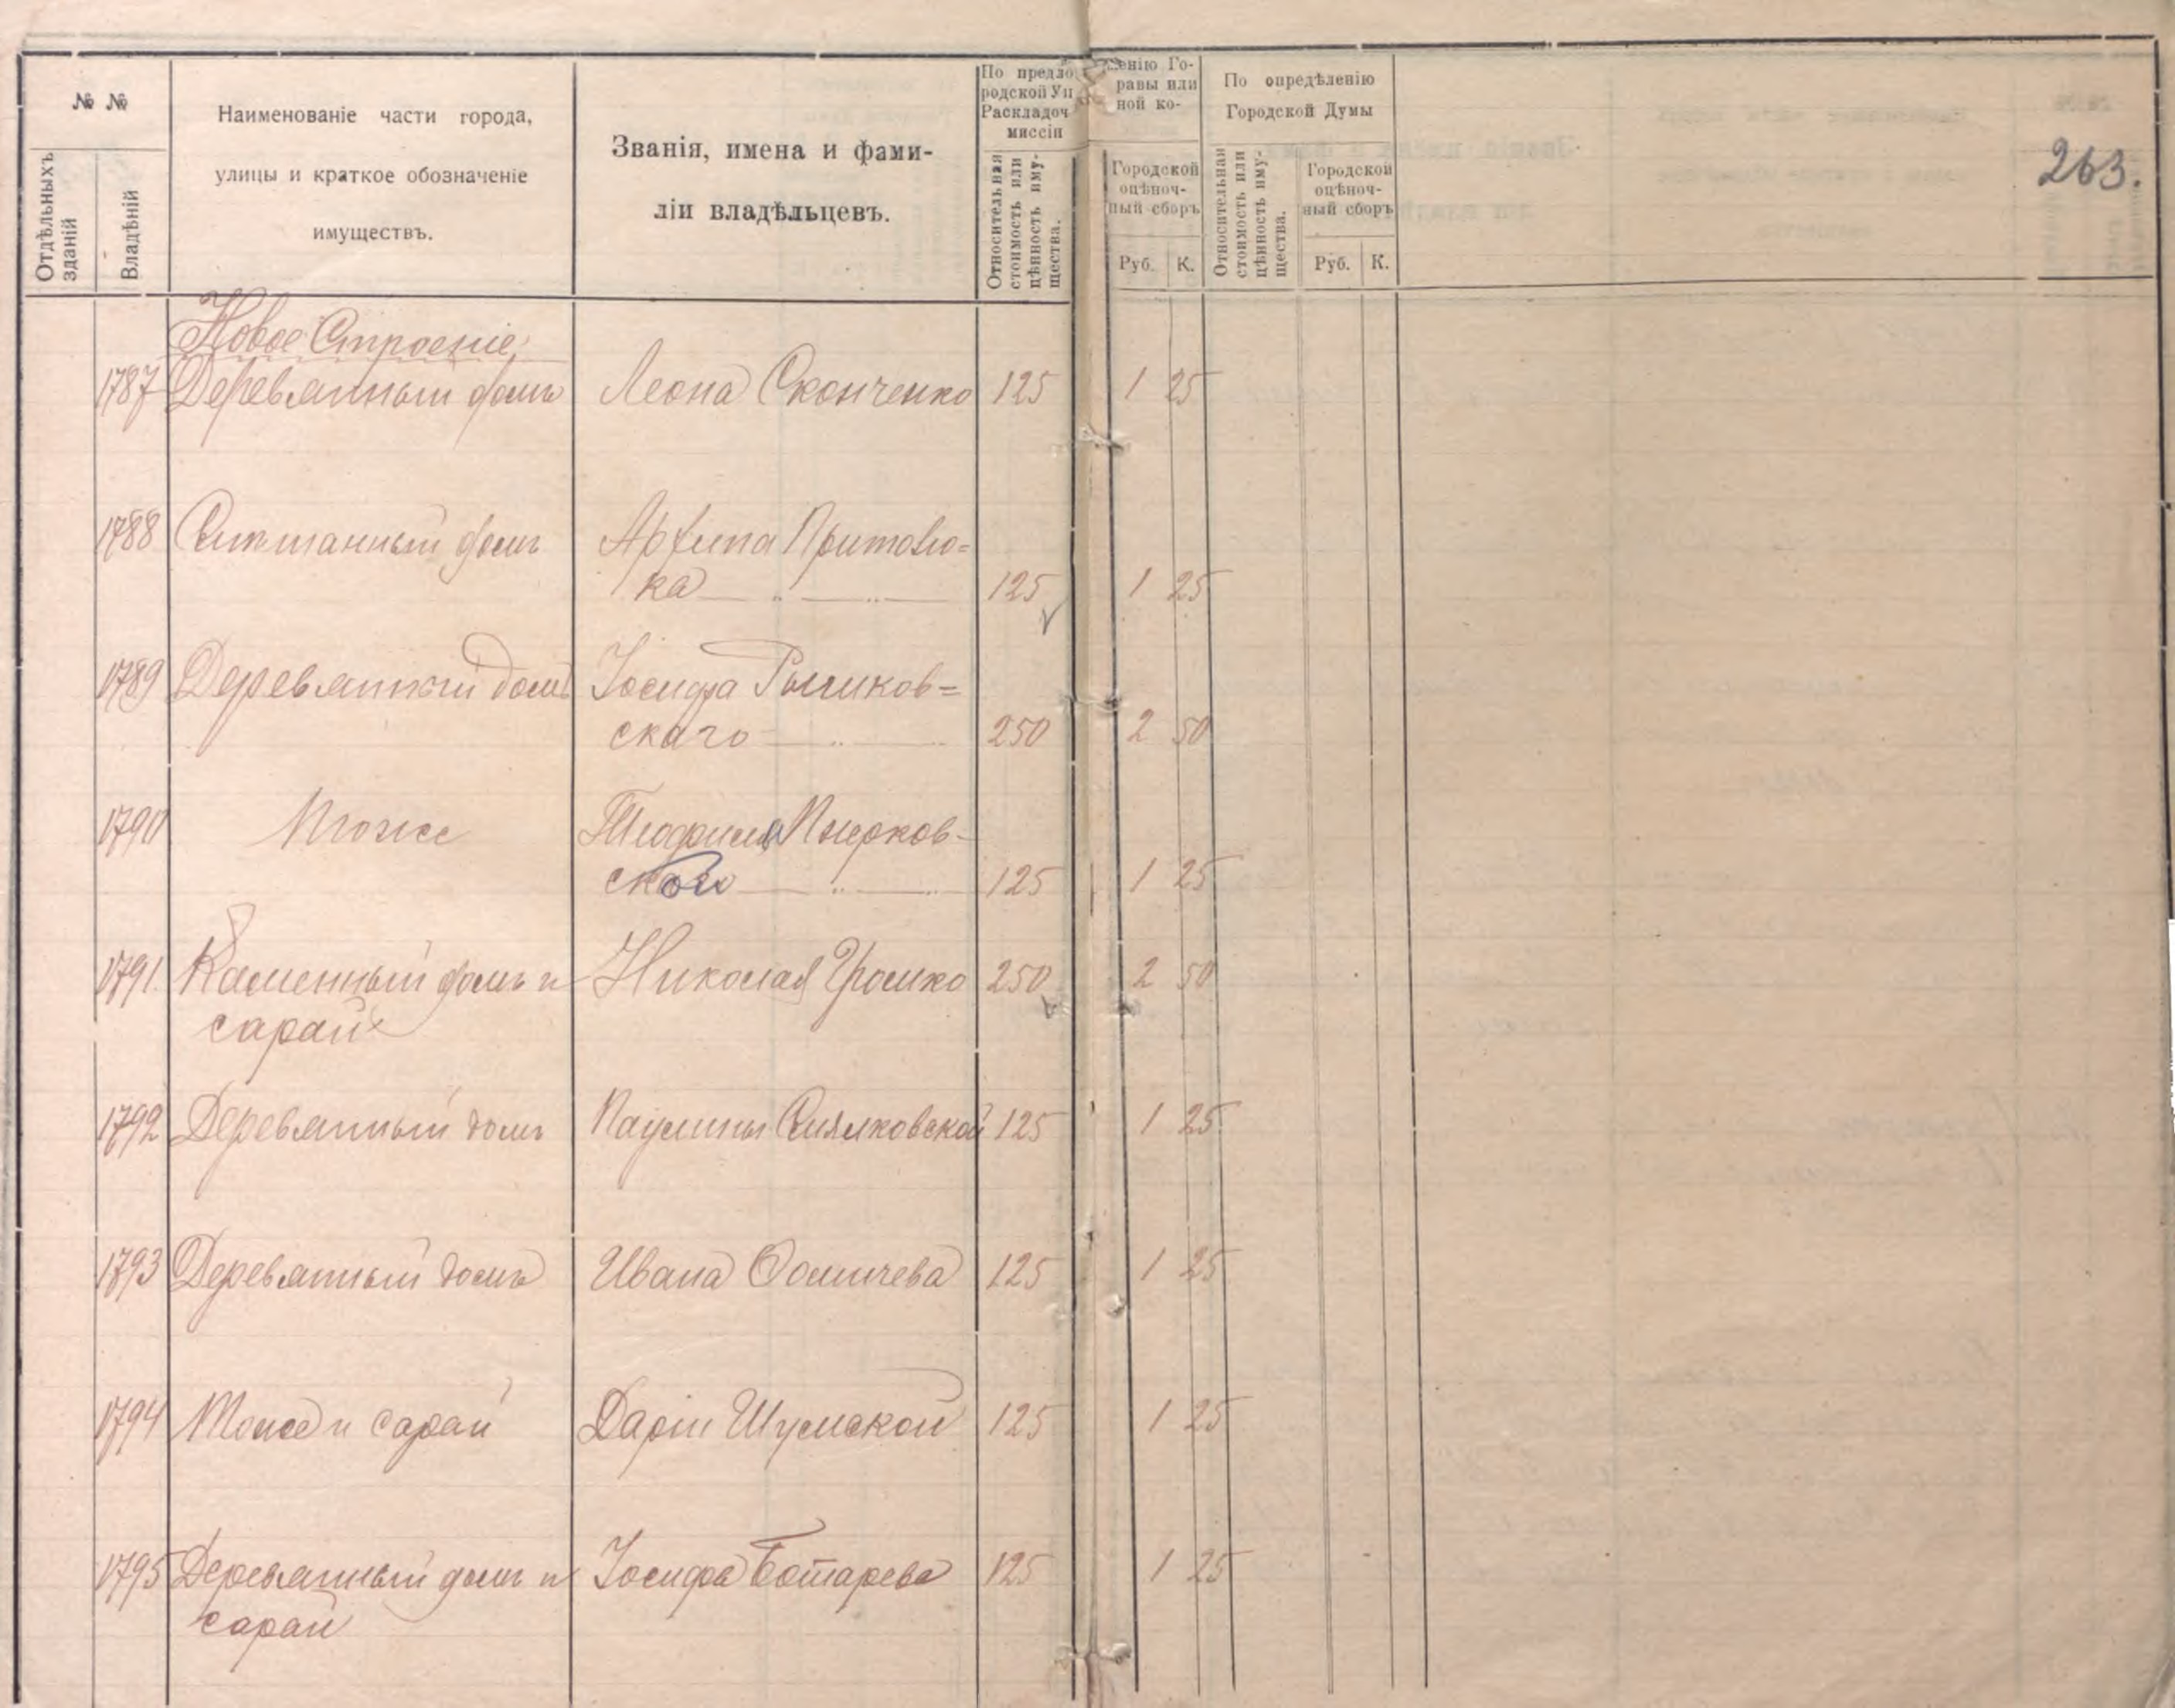 № №
Отдѣльныхъ зданій
Владѣній
Наименованіе части города,
улицы и краткое обозначеніе
имуществъ.
Званія, имена и фами-
ліи владѣльцевъ.
По предло
родской Уп
Раскладоч
миссіи
Относительная стоимость или цѣнность иму-щества.
енію Го-
равы или
ной ко-
Городской
оцѣноч-
ный сборъ
Руб. К.
По опредѣленію
Городской Думы
Относительная стоимость или цѣнность иму-щества.
Городской
оцѣноч-
ный сборъ
Руб. К.
263.
Новое Строеніе,
1787 Деревянный домъ Леона 125 1 25
1788 домъ
ка 125 1 25
1789 Деревянный домъ Іосифа
скаго 250 2 50
1790 Тоже
125 1 25
1791. Каменный домъ и Николая Громко 250 2 50
сарай
1792 Деревянный домъ Паулины 125 1 25
1793 Деревянный домъ Ивана Фомичева 125 1 25
1794 Тоже и сарай Даріи Шумской 125 1 25
1795 Деревянный домъ и Іосифа 125 1 25
сарай